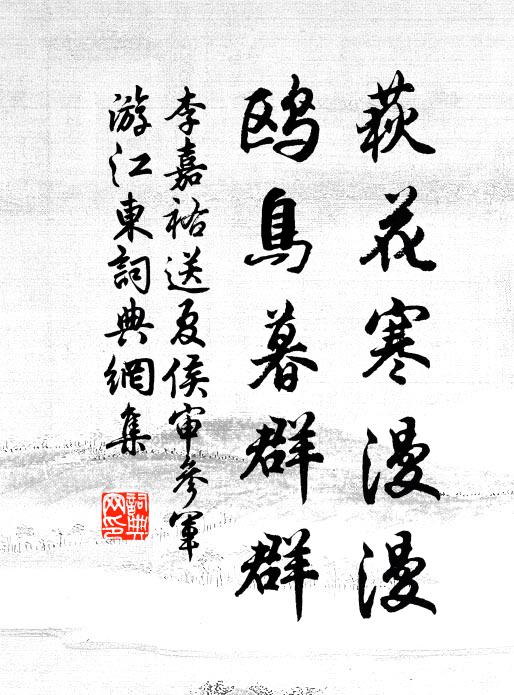 荻花寒漫漫
鸥鸟暮群群
李嘉祐送夏侯审参军
游江東詞典網集
詞典网印